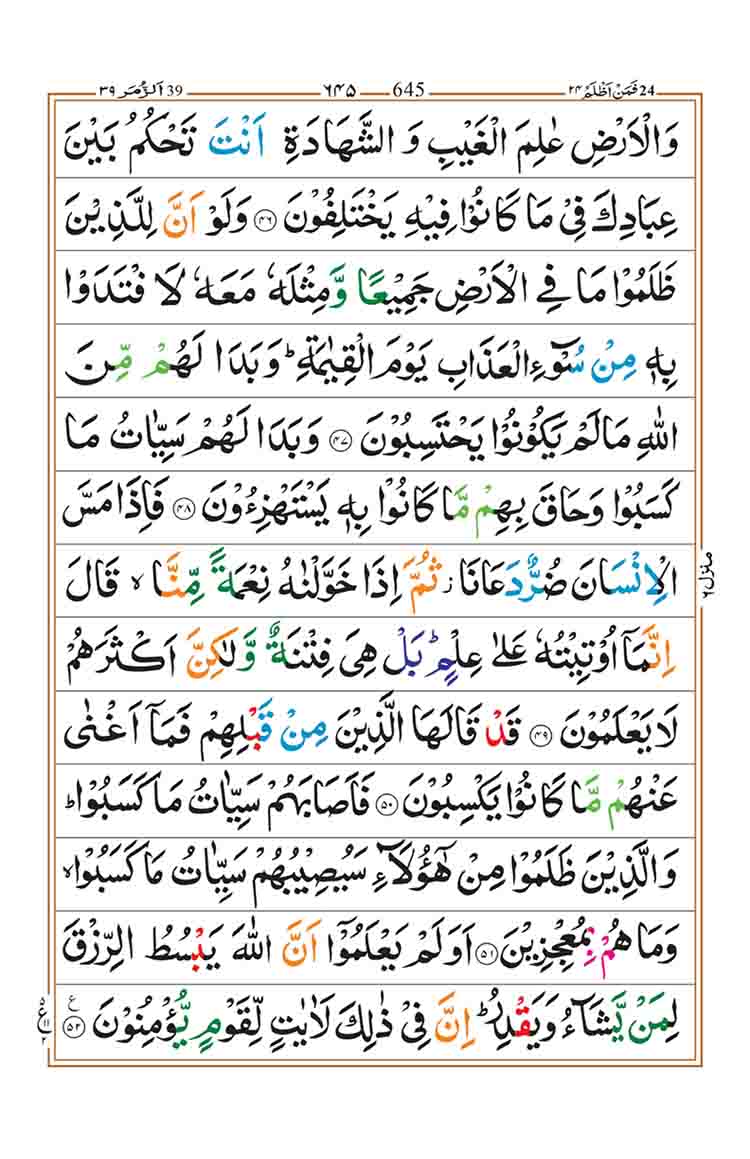 24 فَمَنْ اَظْلَمُ ٢٤ 645 ٦٤٥ 39 اَلزُّمَر ٣٩
وَالْاَرْضِ عٰلِمَ الْغَيْبِ وَ الشَّهَادَةِ اَنْتَ تَحْكُمُ بَيْنَ
عِبَادِكَ فِيْ مَا كَانُوْا فِيْهِ يَخْتَلِفُوْنَ ﴿۴۶﴾ وَلَوْ اَنَّ لِلَّذِيْنَ
ظَلَمُوْا مَا فِي الْاَرْضِ جَمِيْعًا وَّمِثْلَهٗ مَعَهٗ لَا فْتَدَوْا
بِهٖ مِنْ سُوْٓءِ الْعَذَابِ يَوْمَ الْقِيٰمَةِ ؕ وَبَدَا لَهُمْ مِّنَ
اللّٰهِ مَا لَمْ يَكُوْنُوْا يَحْتَسِبُوْنَ ﴿۴۷﴾ وَبَدَا لَهُمْ سَيِّاٰتُ مَا
كَسَبُوْا وَحَاقَ بِهِمْ مَّا كَانُوْا بِهٖ يَسْتَهْزِءُوْنَ ﴿۴۸﴾ فَاِذَا مَسَّ
الْاِنْسَانَ ضُرٌّ دَعَانَا ز ثُمَّ اِذَا خَوَّلْنٰهُ نِعْمَةً مِّنَّا ۙ قَالَ
اِنَّمَاۤ اُوْتِيْتُهٗ عَلٰى عِلْمٍ ؕ بَلْ هِيَ فِتْنَةٌ وَّلٰكِنَّ اَكْثَرَهُمْ
لَا يَعْلَمُوْنَ ﴿۴۹﴾ قَدْ قَالَهَا الَّذِيْنَ مِنْ قَبْلِهِمْ فَمَاۤ اَغْنٰى
عَنْهُمْ مَّا كَانُوْا يَكْسِبُوْنَ ﴿۵۰﴾ فَاَصَابَهُمْ سَيِّاٰتُ مَا كَسَبُوْا ؕ
وَالَّذِيْنَ ظَلَمُوْا مِنْ هٰۤؤُلَآءِ سَيُصِيْبُهُمْ سَيِّاٰتُ مَا كَسَبُوْا ۙ
وَمَا هُمْ بِمُعْجِزِيْنَ ﴿۵۱﴾ اَوَلَمْ يَعْلَمُوْۤا اَنَّ اللّٰهَ يَبْسُطُ الرِّزْقَ
لِمَنْ يَّشَآءُ وَيَقْدِرُ ؕ اِنَّ فِيْ ذٰلِكَ لَاٰيٰتٍ لِّقَوْمٍ يُّؤْمِنُوْنَ ﴿۵۲﴾ ع
منزل ٦
٥ ع ١١ ٢